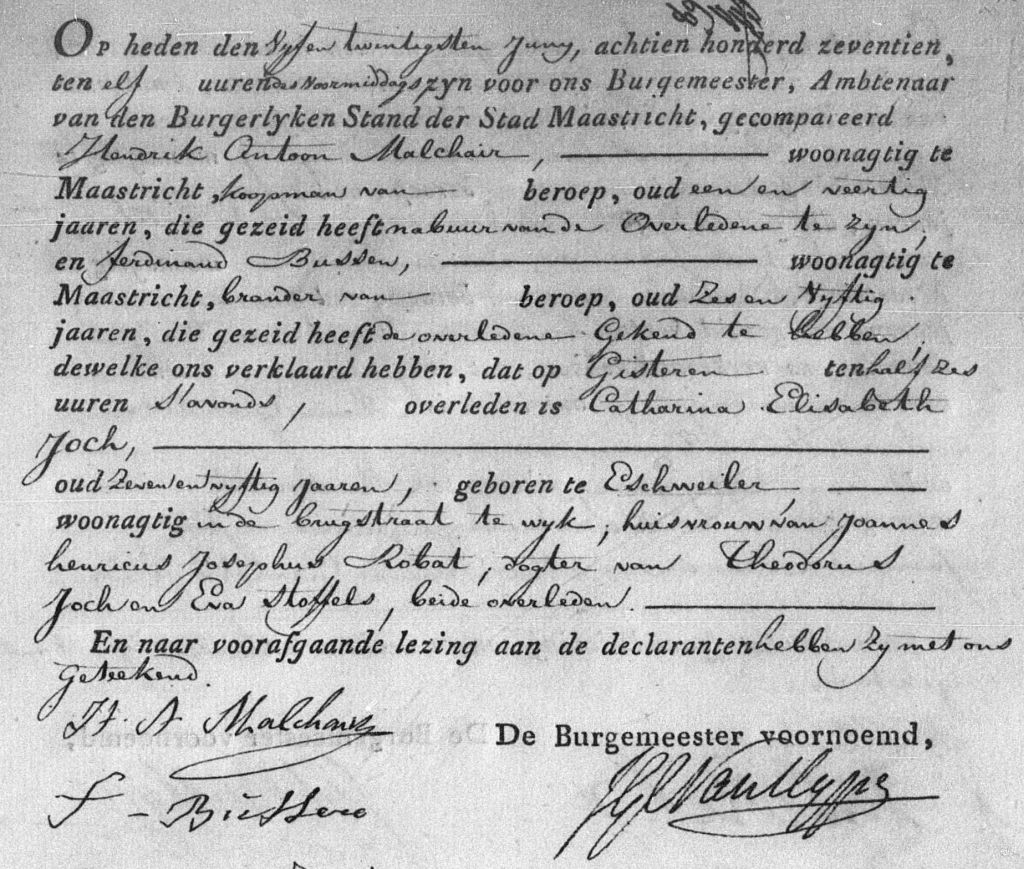 Op heden den Vyfen twintigsten Juny, achtien honderd zeventien,
ten elf uuren des voormiddags zyn voor ons Burgemeester, Ambtenaar
van den Burgerlyken Stand der Stad Maastricht, gecompareerd
Hendrik Antoon Malchair, woonagtig te
Maastricht, koopman van beroep, oud een en veertig
jaaren, die gezeid heeft nabuur van de Overledene te zyn,
en ferdinand Bussen, woonagtig te
Maastricht, brander van beroep, oud Zes en Vyftig
jaaren, die gezeid heeft de overledene Gekend te hebben,
dewelke ons verklaard hebben, dat op Gisteren ten half zes
uuren s'avonds, overleden is Catharina Elisabeth
Joch,
oud Zeven en vyftig Jaaren, geboren te Eschweiler
woonagtig in de brugstraat te wyk, huisvrouw van Joannes
henricus Josephus Robat, dogter van Theodorus
Joch en Eva Stoffels, beide overleden.
En naar voorafgaande lezing aan de declaranten hebben zy met ons
Geteekend.
H. A Malchair
De Burgemeester voornoemd,
F - Bussen